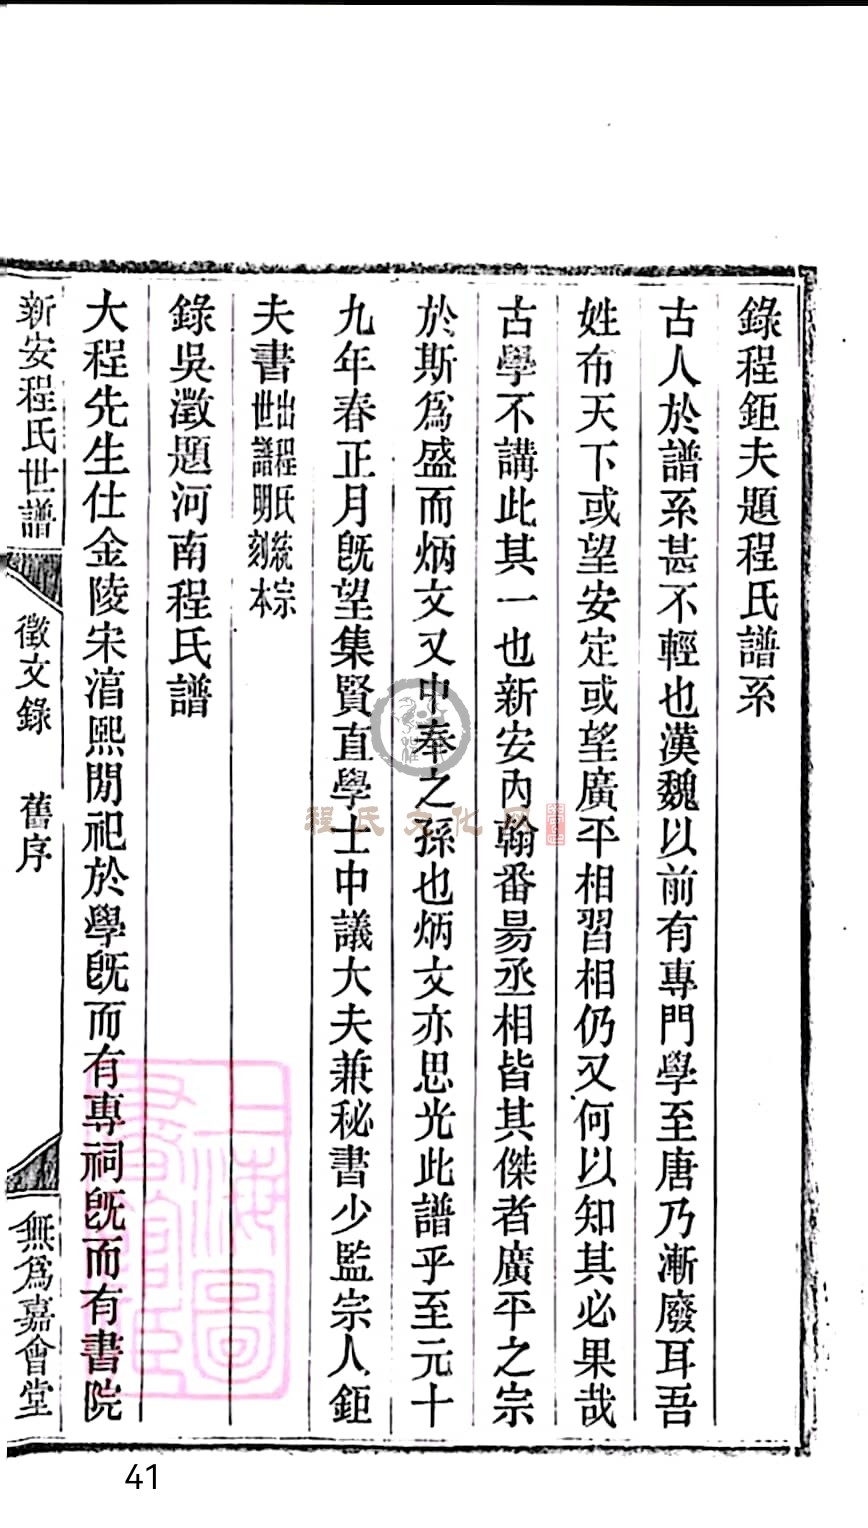 錄程鉅夫題程氏譜系
古人於譜系甚不輕也漢魏以前有專門學至唐乃漸廢耳吾
姓布天下或望安定或望廣平相習相仍又何以知其必果哉
古學不講此其一也新安內翰番昜丞相皆其傑者廣平之宗
於斯爲盛而炳文又中奉之孫也炳文亦思光此譜乎至元十
九年春正月旣望集賢直學士中議大夫兼秘書少監宗人鉅
夫書出程氏統宗世譜明刻本
錄吳澂題河南程氏譜
大程先生仕金陵宋湻熙閒祀於學旣而有專祠旣而有書院
新安程氏世譜 徵文錄 舊序 無爲嘉會堂
程氏文化网
上海圖書館藏
41